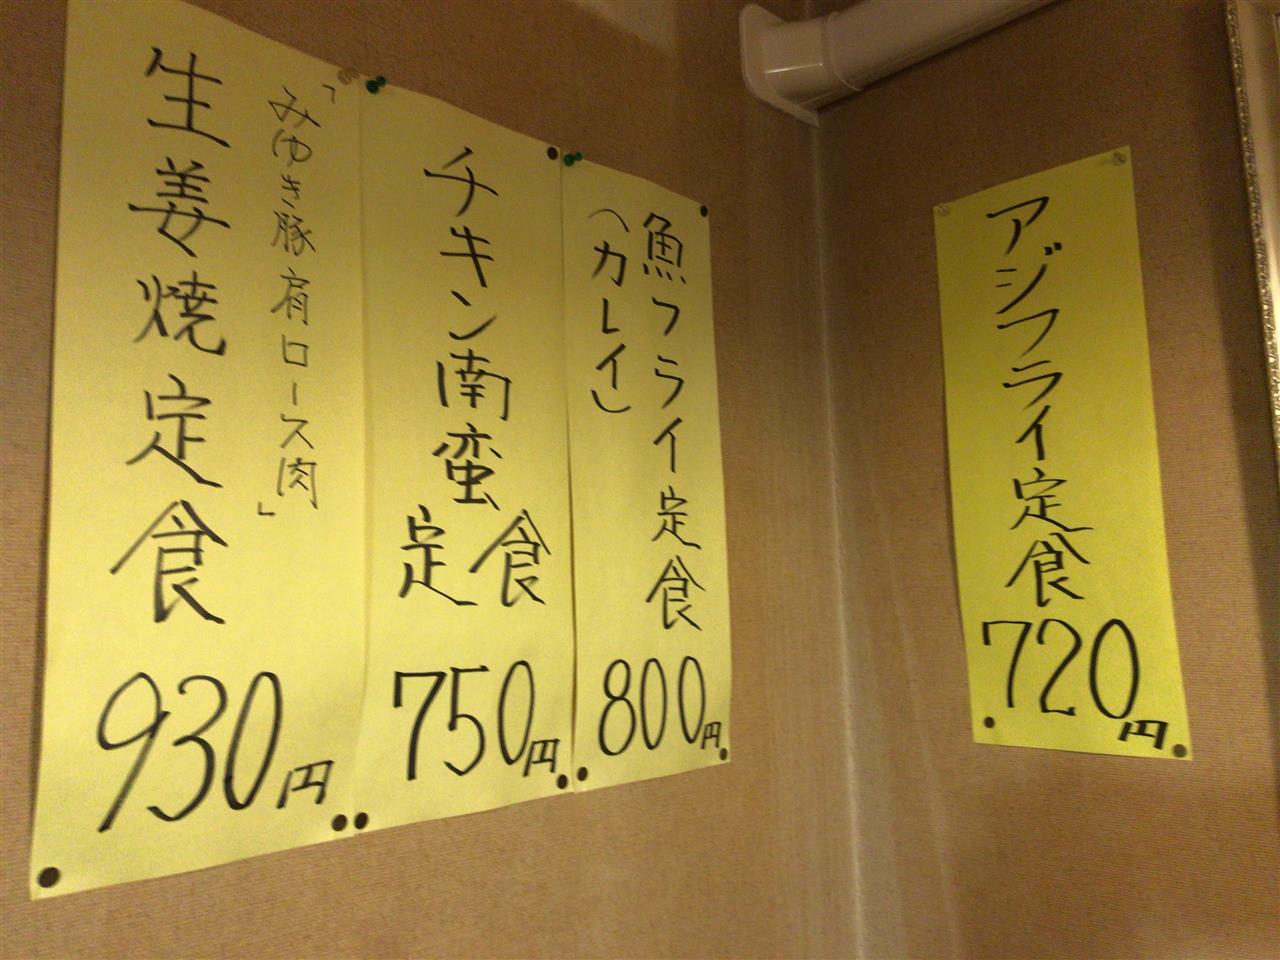 アジフライ定食
720円
魚フライ定食
(カレイ)
800円
チキン南蛮
定食
750円
「みゆき豚肩ロース肉」
生姜焼定食
930円